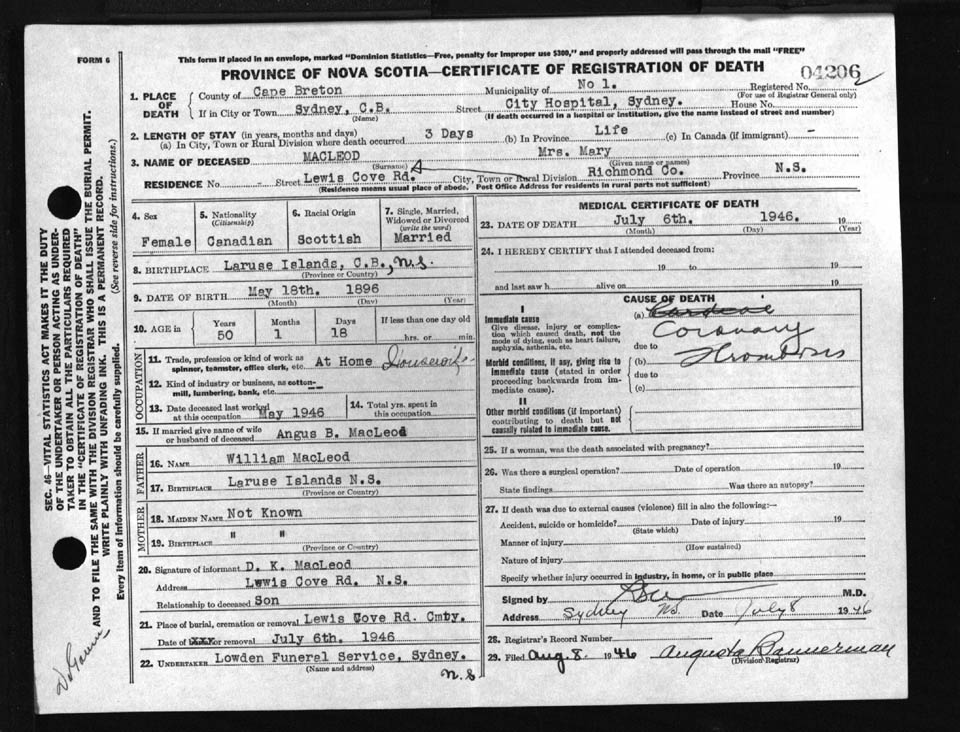 FORM 6
This form if placed in an envelope, marked "Dominion Statistics—Free, penalty for improper use $300," and properly addressed will pass through the mail "FREE"
PROVINCE OF NOVA SCOTIA—CERTIFICATE OF REGISTRATION OF DEATH
04206
1. PLACE OF DEATH
County of Cape Breton Municipality of No 1. Registered No.
(For use of Registrar General only)
If in City or Town Sydney, C.B. Street City Hospital, Sydney. House No.
(Name) (If death occurred in a hospital or institution, give the name instead of street and number)
2. LENGTH OF STAY (in years, months and days)
(a) In City, Town or Rural Division where death occurred 3 Days (b) In Province Life (c) In Canada (if immigrant) -
3. NAME OF DECEASED MACLEOD Mrs. Mary
(Surname) (Given name or names)
RESIDENCE No. - Street Lewis Cove Rd. City, Town or Rural Division Richmond Co. Province N.S.
(Residence means usual place of abode. Post Office Address for residents in rural parts not sufficient)
4. Sex
Female
5. Nationality
(Citizenship)
Canadian
6. Racial Origin
Scottish
7. Single, Married, Widowed or Divorced
(write the word)
Married
8. BIRTHPLACE Laruse Islands, C.B., N.S.
(Province or Country)
9. DATE OF BIRTH May 18th. 1896
(Month) (Day) (Year)
10. AGE in
Years Months Days If less than one day old
50 1 18 hrs. or min.
OCCUPATION
11. Trade, profession or kind of work as spinner, teamster, office clerk, etc. At Home Housewife
12. Kind of industry or business, as cotton-mill, lumbering, bank, etc.
13. Date deceased last worked at this occupation May 1946
14. Total yrs. spent in this occupation
15. If married give name of wife or husband of deceased Angus B. MacLeod
FATHER
16. NAME William MacLeod
17. BIRTHPLACE Laruse Islands N.S.
(Province or Country)
MOTHER
18. MAIDEN NAME Not Known
19. BIRTHPLACE " "
(Province or Country)
20. Signature of informant D. K. MacLeod
Address Lewis Cove Rd. N.S.
Relationship to deceased Son
21. Place of burial, cremation or removal Lewis Cove Rd. Cmty.
Date of XXX or removal July 6th. 1946
22. UNDERTAKER Lowden Funeral Service, Sydney.
(Name and address) N.S
MEDICAL CERTIFICATE OF DEATH
23. DATE OF DEATH July 6th. 1946. 19
(Month) (Day) (Year)
24. I HEREBY CERTIFY that I attended deceased from:
19 to 19
and last saw h alive on 19
CAUSE OF DEATH
I
Immediate cause
Give disease, injury or complication which caused death, not the mode of dying, such as heart failure, asphyxia, asthenia, etc.
Morbid conditions, if any, giving rise to immediate cause (stated in order proceeding backwards from immediate cause).
II
Other morbid conditions (if important) contributing to death but not causally related to immediate cause.
(a)
Coronary
due to
(b) Thrombosis
due to
(c)
25. If a woman, was the death associated with pregnancy?
26. Was there a surgical operation? Date of operation 19
State findings Was there an autopsy?
27. If death was due to external causes (violence) fill in also the following:—
Accident, suicide or homicide? Date of injury 19
(State which)
Manner of injury
(How sustained)
Nature of injury
Specify whether injury occurred in industry, in home, or in public place
Signed by M.D.
Address Sydney N.S. Date July 8 1946
28. Registrar's Record Number
29. Filed Aug. 8. 1946 Augusta Bannerman
(Division Registrar)
SEC. 46—VITAL STATISTICS ACT MAKES IT THE DUTY
OF THE UNDERTAKER OR PERSON ACTING AS UNDER-
TAKER TO OBTAIN ALL THE PARTICULARS REQUIRED
IN THE "CERTIFICATE OF REGISTRATION OF DEATH"
AND TO FILE THE SAME WITH THE DIVISION REGISTRAR WHO SHALL ISSUE THE BURIAL PERMIT.
WRITE PLAINLY WITH UNFADING INK. THIS IS A PERMANENT RECORD.
Every item of information should be carefully supplied. (See reverse side for instructions.)